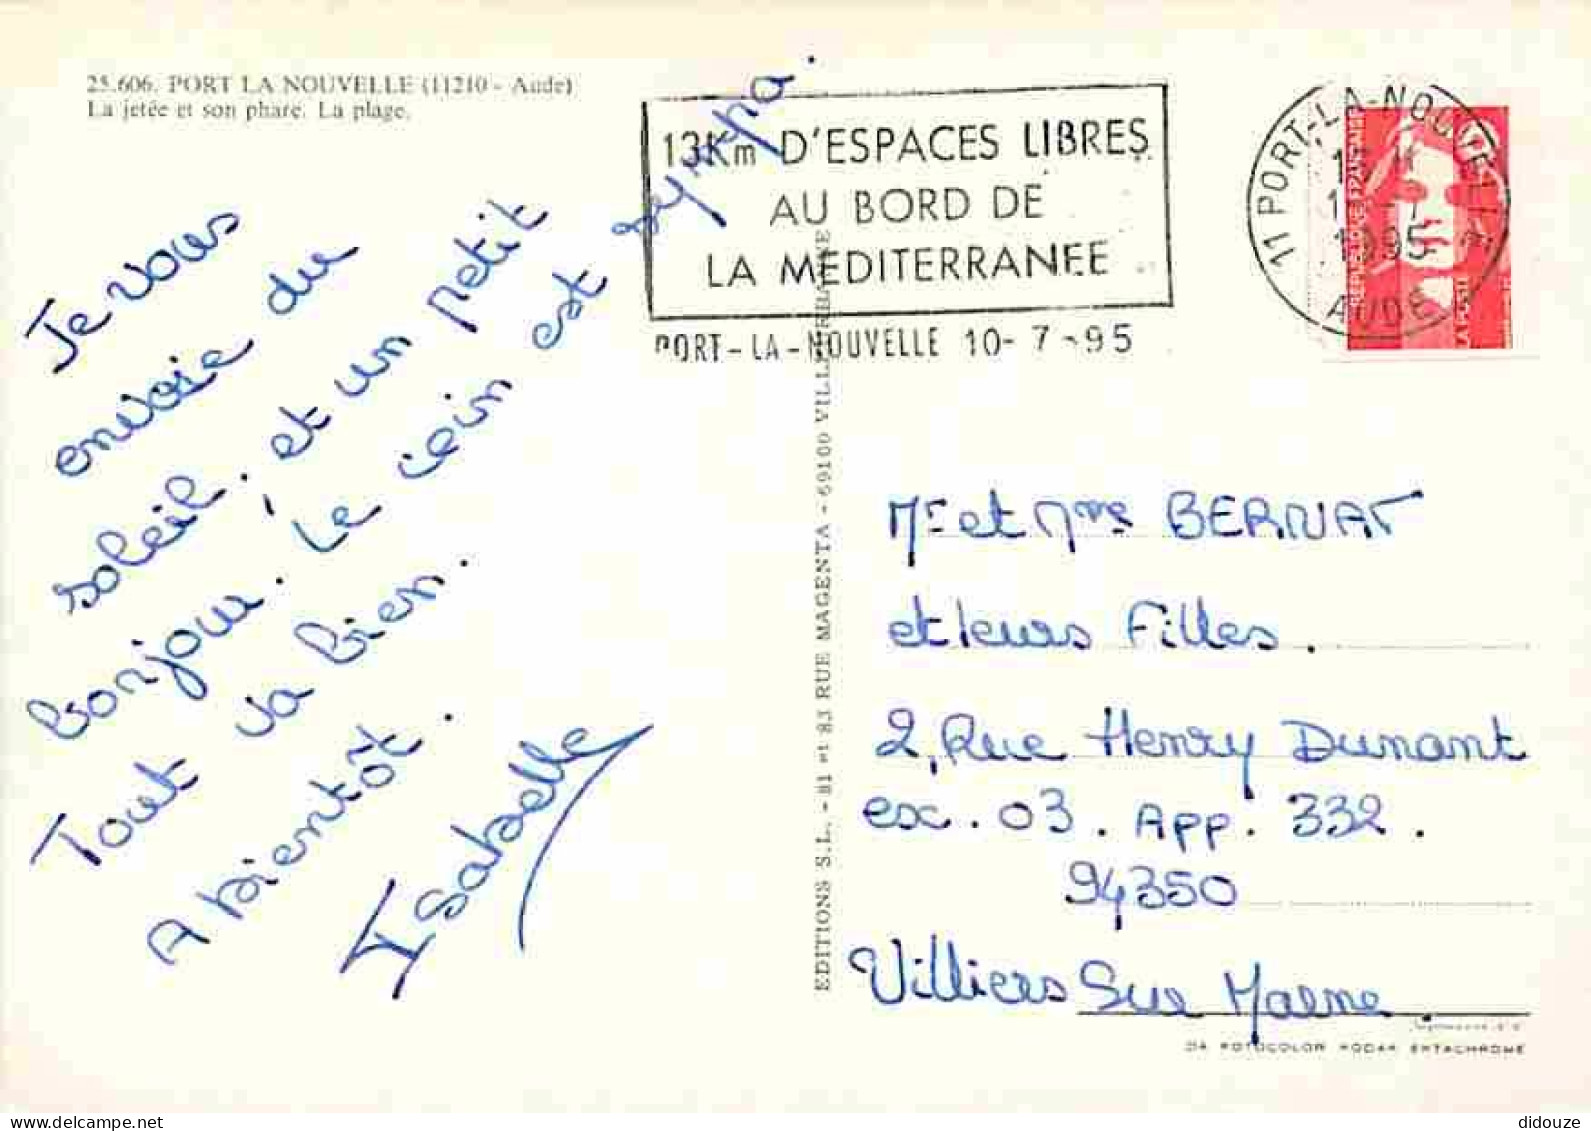 25.606. PORT LA NOUVELLE (11210 - Aude)
La jetée et son phare. La plage.
Je vous
envoie du
soleil, et un petit
bonjour. Le coin est sympa.
Tout va bien.
A bientôt.
Isabelle
EDITIONS S.L. - 81 et 83 RUE MAGENTA - 69100 VILLEURBANNE
13Km D'ESPACES LIBRES
AU BORD DE
LA MEDITERRANEE
PORT-LA-NOUVELLE 10-7-95
11 PORT-LA-NOUVELLE
1995
AUDE
REPUBLIQUE FRANÇAISE
LA POSTE
Mr et Mme BERNAT
et leurs Filles.
2, Rue Henry Dunant
esc. 03. App. 332.
94350
Villiers Sur Marne.
KODAK EKTACHROME
delcampe.net
didouze